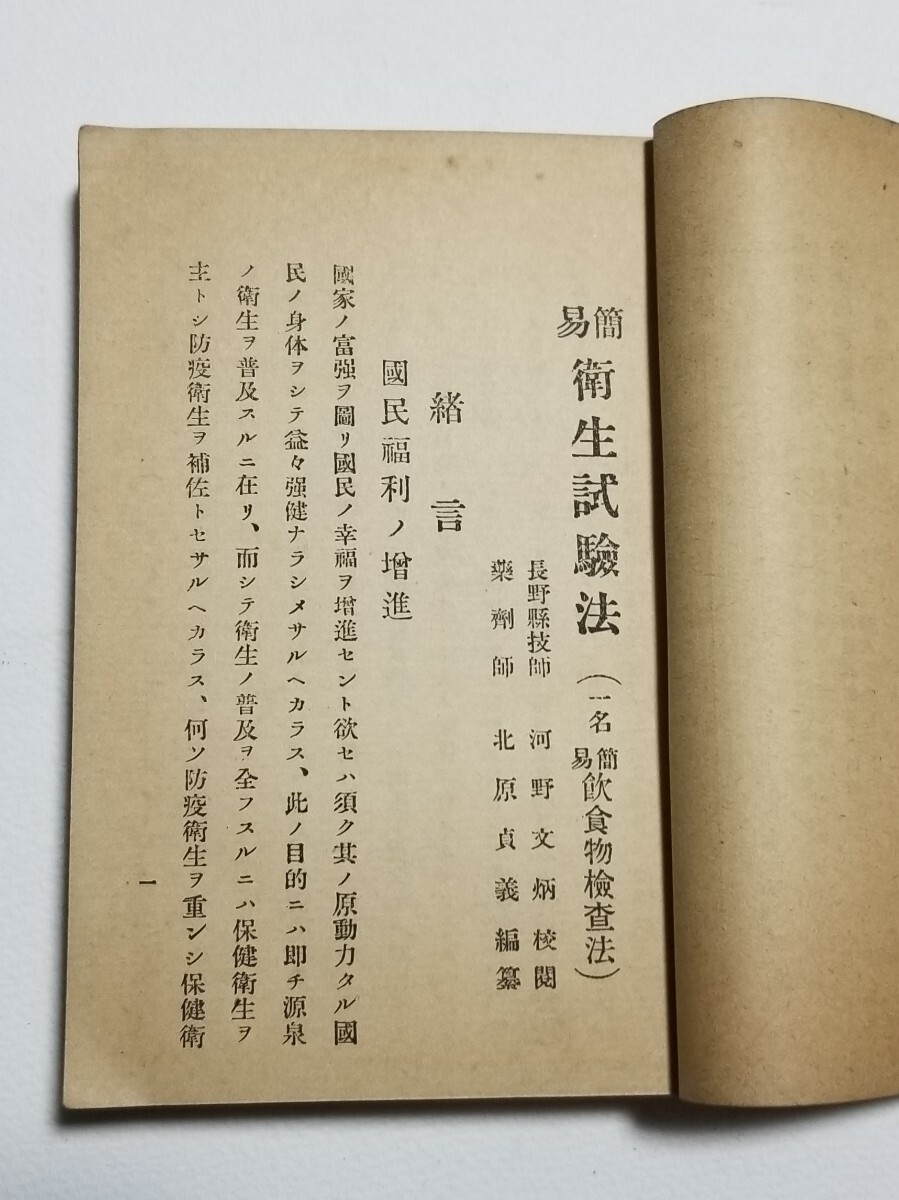 簡易 衛生試驗法（一名簡易飲食物檢查法）
長野縣技師 河野文炳校閱
藥劑師 北原貞義編纂
緒言
國民福利ノ增進
國家ノ富强ヲ圖リ國民ノ幸福ヲ增進セント欲セハ須ク其ノ原動力タル國
民ノ身体ヲシテ益々强健ナラシメサルヘカラス、此ノ目的ニハ卽チ源泉
ノ衛生ヲ普及スルニ在リ、而シテ衛生ノ普及ヲ全フスルニハ保健衛生ヲ
主トシ防疫衛生ヲ補佐トセサルヘカラス、何ソ防疫衛生ヲ重ンシ保健衛
一